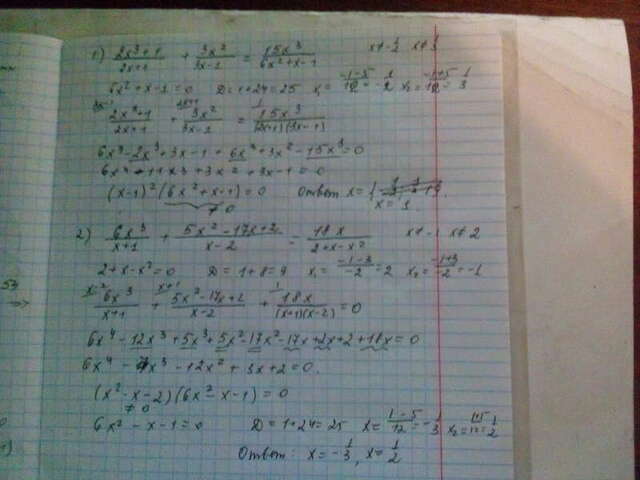 1) (2x³+1)/(2x+1) + 3x²/(3x-1) = 15x³/(6x²+x-1) x≠-1/2 x≠1/3
6x²+x-1=0 D=1+24=25 x₁=(-1-5)/12=-1/2 x₂=(-1+5)/12=1/3
(2x³+1)/(2x+1) + 3x²/(3x-1) = 15x³/((2x+1)(3x-1))
6x⁴-2x³+3x-1+6x³+3x²-15x³=0
6x⁴-11x³+3x²+3x-1=0
(x-1)²(6x²+x-1)=0 Ответ x=
≠0 x=1.
2) 6x³/(x+1) + (5x²-17x+2)/(x-2) = 18x/(2+x-x²) x≠-1 x≠2
2+x-x²=0 D=1+8=9 x₁=(-1-3)/-2=2 x₂=(-1+3)/-2=-1
57
x-2 x+1 1
6x³/(x+1) + (5x²-17x+2)/(x-2) + 18x/((x+1)(x-2))=0
6x⁴-12x³+5x³+5x²-17x²-17x+2x+2+18x=0
6x⁴-7x³-12x²+3x+2=0.
(x²-x-2)(6x²-x-1)=0
≠0
6x²-x-1=0 D=1+24=25 x=(1-5)/12=-1/3 x₂=(1+5)/12=1/2
Ответ: x=-1/3, x=1/2